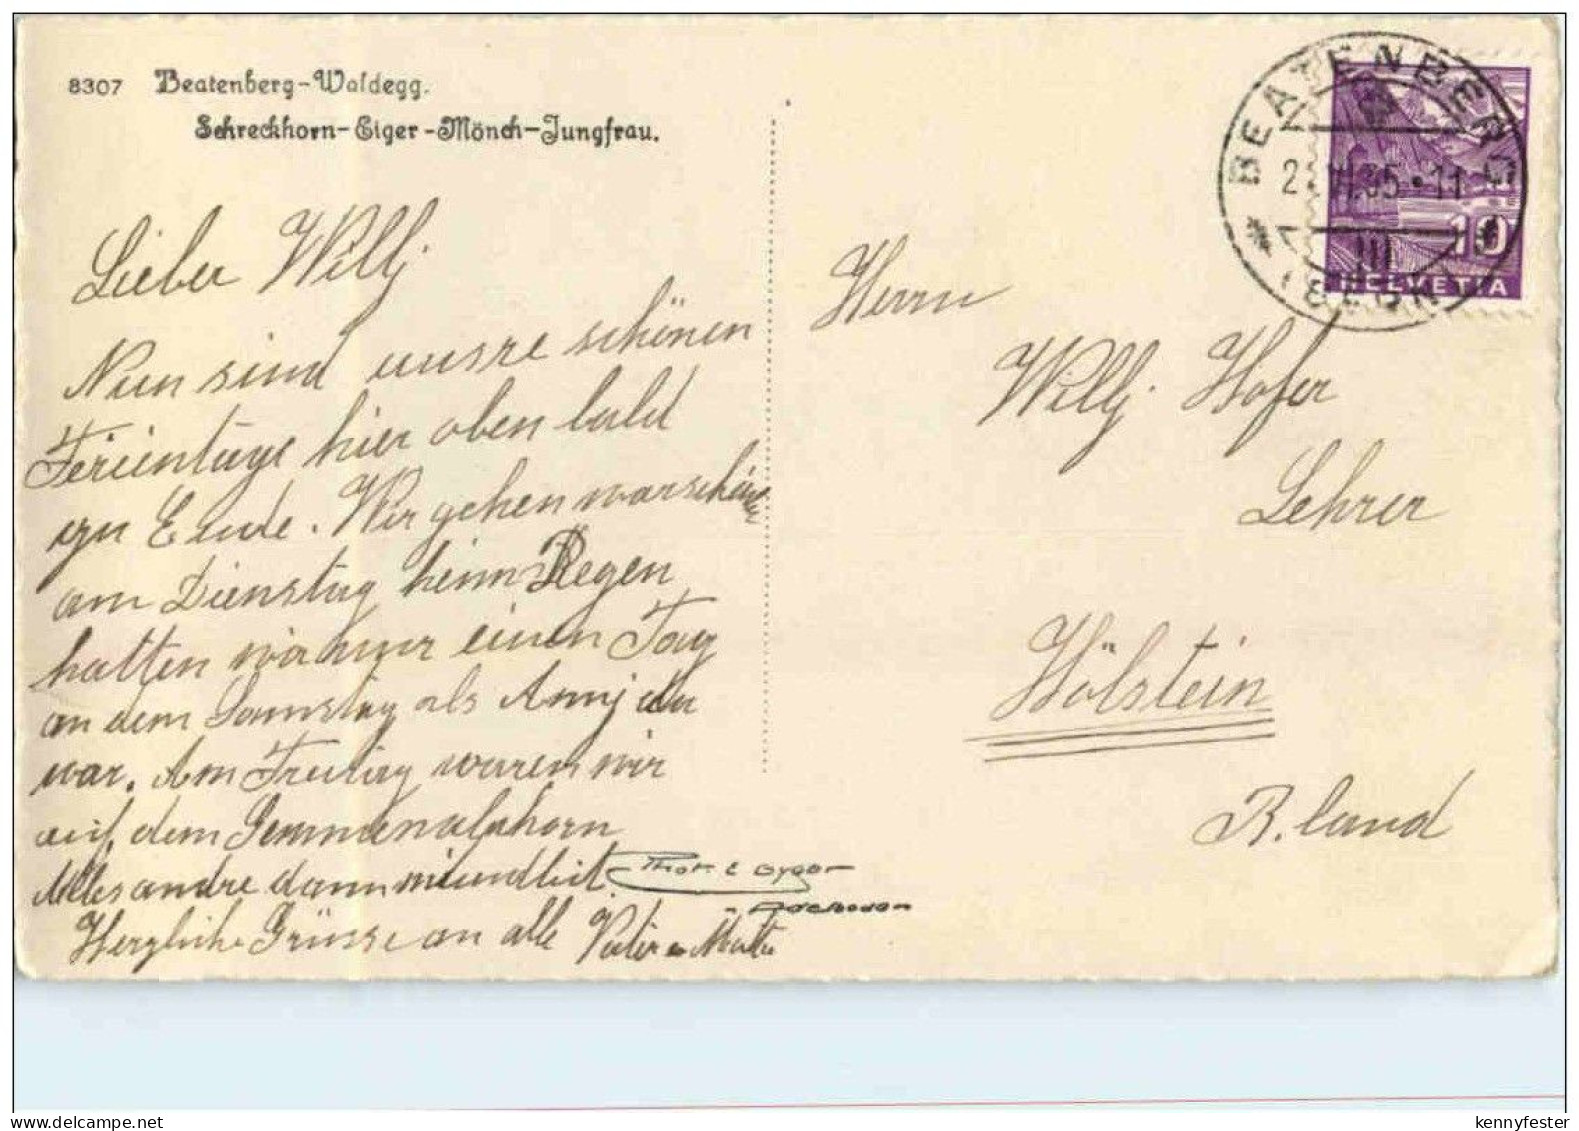 8307 Beatenberg-Waldegg.
Schreckhorn-Eiger-Mönch-Jungfrau.
BEATENBERG
VII.35.-11
III
(BERN)
10
HELVETIA
Lieber Willj
Nun sind unsre schönen
Ferientage hier oben bald
zu Ende. Wir gehen warscheinl
am Dienstag heim Regen
hatten wir nur einen Tag
an dem Samstag als Annj da
war. Am Freitag waren wir
auf dem Gemmenalphorn
Alles andre dann mündlich
Herzliche Grüsse an alle Vater u Mutter
Phot. E Gyger
Adelboden
Herrn
Willj Hofer
Lehrer
Hölstein
B.land
kennyfester